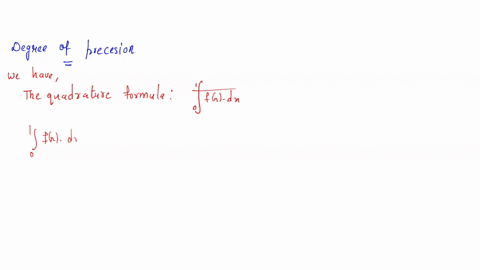 Degree of precesion
we have,
The quadrature formula: ∫₀¹ f(x).dx
∫₀¹ f(x). dx